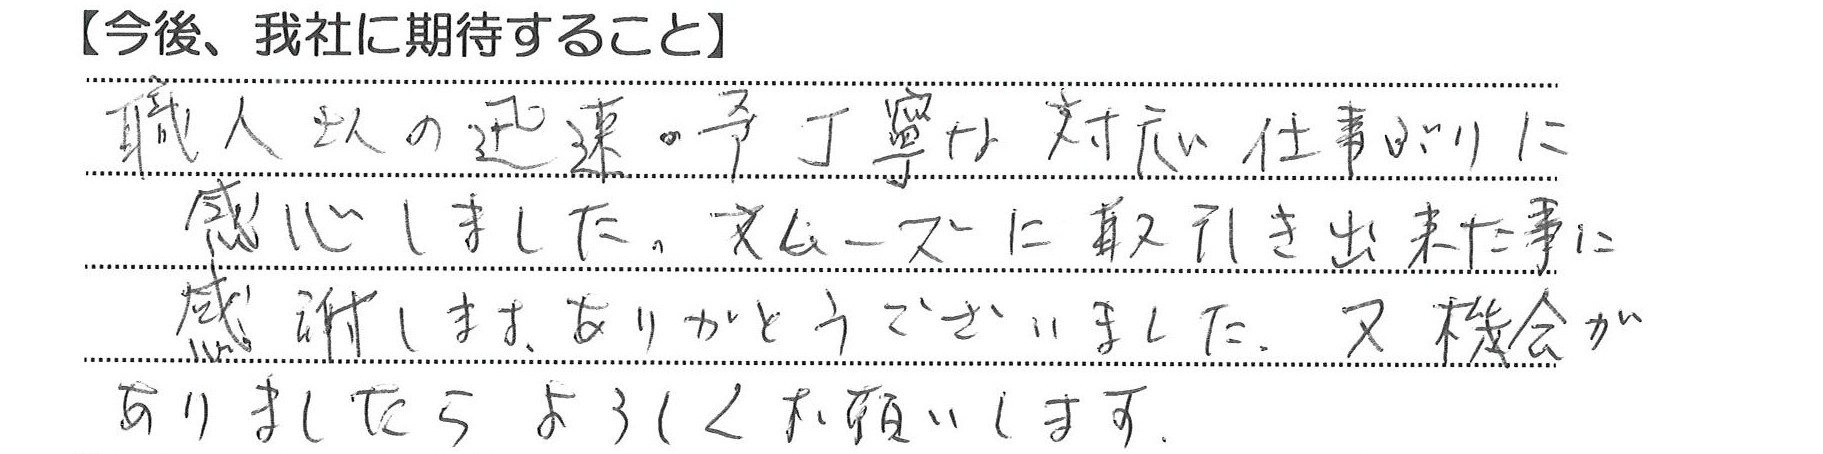 【今後、我社に期待すること】
職人さんの迅速・丁寧な対応い仕事ぶりに
感心しました。スムーズに取引き出来た事に
感謝します。ありがとうございました。又機会が
ありましたらよろしくお願いします。